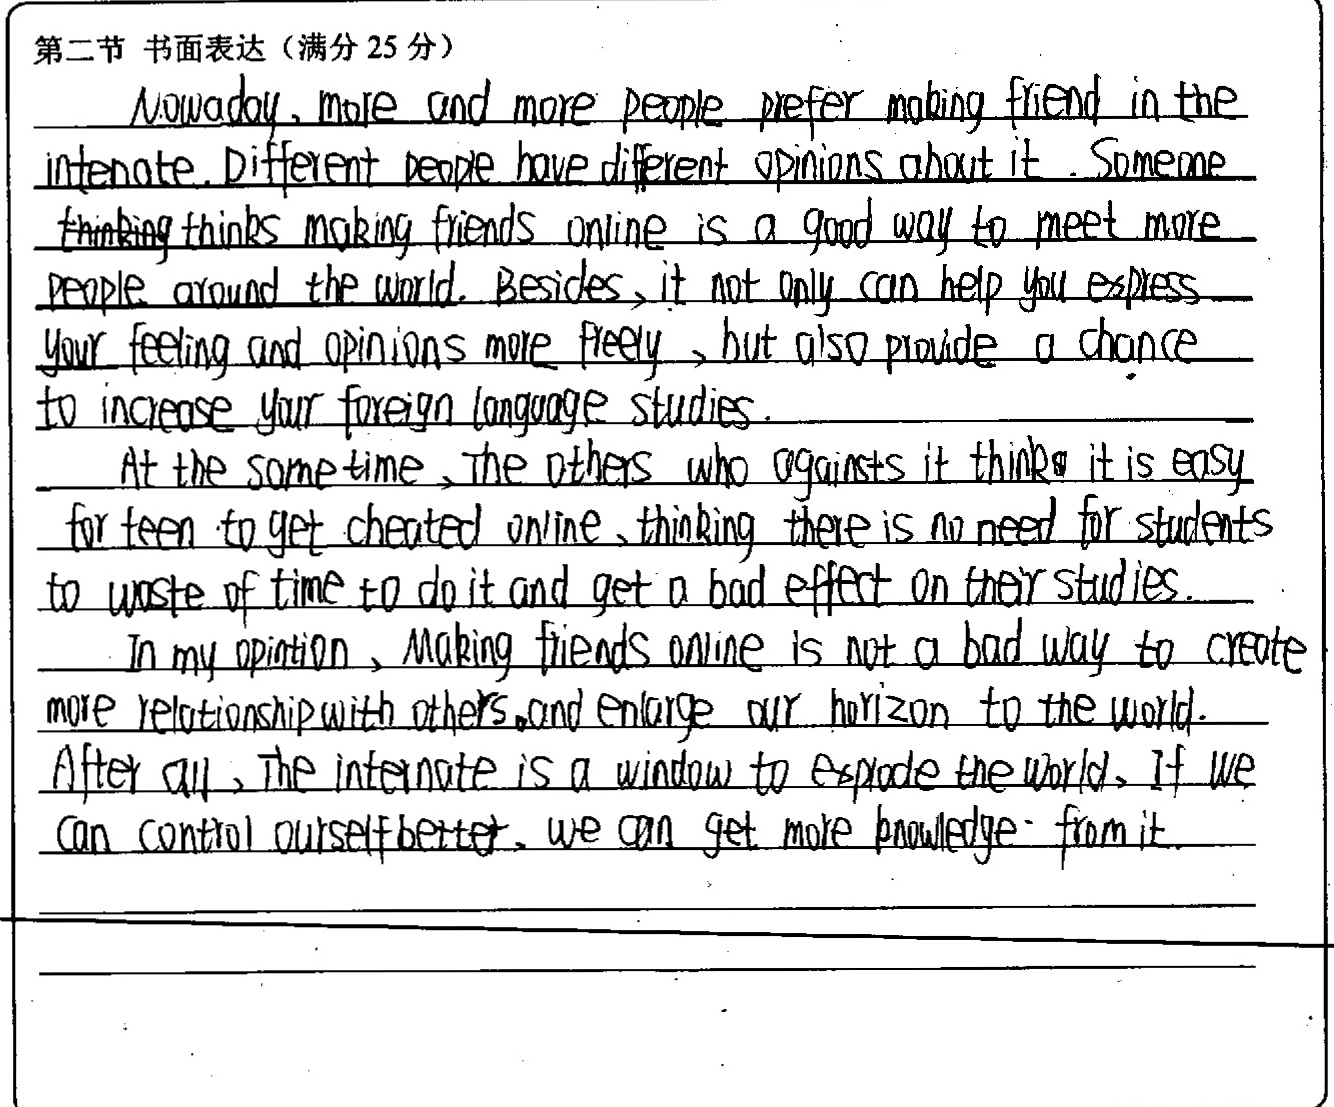 第二节 书面表达（满分 25 分）
Nowaday, more and more people prefer making friend in the
intenate. Different people have different opinions about it. Someone
thinking thinks making friends online is a good way to meet more
people around the world. Besides, it not only can help you express
your feeling and opinions more freely, but also provide a chance
to increase your foreign language studies.
At the same time, The others who againsts it think it is easy
for teen to get cheated online, thinking there is no need for students
to waste of time to do it and get a bad effect on their studies.
In my opintion, Making friends online is not a bad way to create
more relationship with others, and enlarge our horizon to the world.
After all, The internate is a window to explode the world, If we
can control ourself better, we can get more knowledge from it.